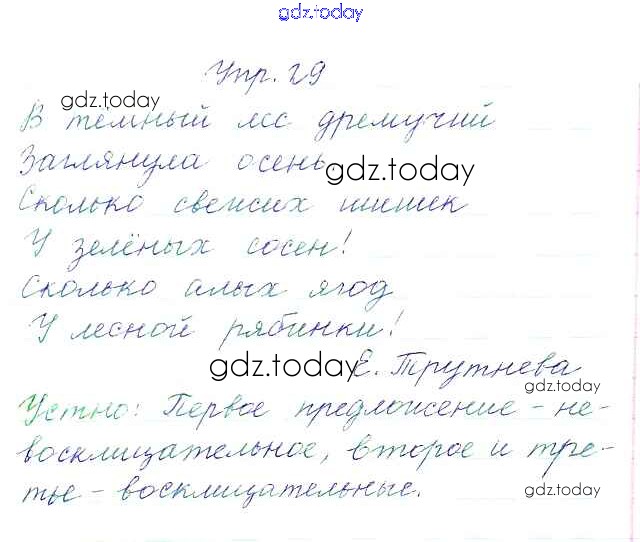 gdz.today
Упр. 29
gdz.today
В тёмный лес дремучий
Заглянула осень.
gdz.today
Сколько свежих шишек
У зелёных сосен!
Сколько алых ягод
У лесной рябинки!
gdz.today
Е. Трутнева
gdz.today
Устно: Первое предложение - не-
восклицательное, второе и тре-
тье - восклицательные.
gdz.today